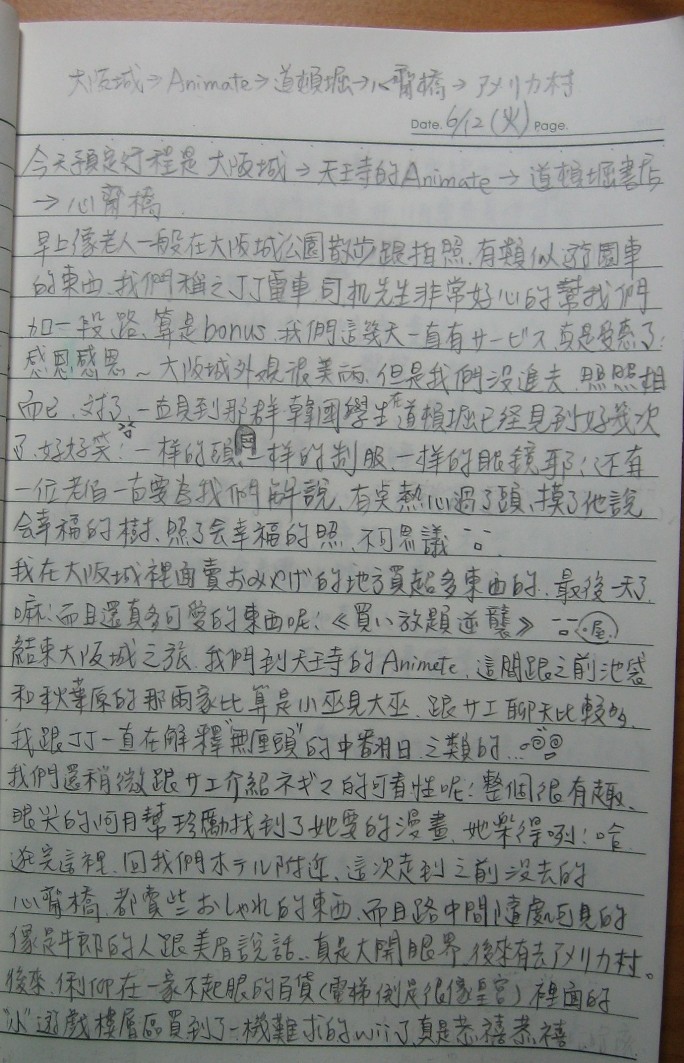 大阪城→Animate→道頓堀→心齋橋→アメリカ村
Date. 6/12(火) Page.
今天預定行程是 大阪城→天王寺的Animate→道頓堀書店
→心齋橋.
早上像老人一般在大阪城公園散步跟拍照.有類似遊園車
的東西.我們稱之丁丁電車 司机先生非常好心的幫我們
加一段路.算是bonus.我們這幾天一直有サービス真是受惠了:
感恩感恩~大阪城外觀很美麗.但是我們沒進去.照照相
而已.對了.一直見到那群韓國學生在道頓堀已経見到好幾次
了.好好笑!一樣的頭.一樣的制服.一樣的眼鏡耶!還有
一位老伯一直要為我們解說.有点熱心過了頭.摸了他說
会幸福的樹.照了会幸福的照.不可思議
我在大阪城裡面賣おみやげ的地方買超多東西的.最後一天了
嘛!而且還真多可愛的東西呢!《買い放題逆襲》 屋.
結束大阪城之旅.我們到天王寺的Animate.這間跟之前池袋
和秋葉原的那兩家比算是小巫見大巫.跟サエ聊天比較多.
我跟丁丁一直在解釋"無厘頭"的中翻日之類的...
我們還稍微跟サエ介紹ネギマ的可看性呢!整個很有趣.
眼尖的阿月幫珍勵找到了她要的漫畫.她樂得咧!哈
逛完這裡.回我們ホテル附近.這次走到之前沒去的
心齋橋.都賣些おしゃれ的東西.而且路中間隨處可見的
像是牛郎的人跟美眉說話..真是大開眼界.後來有去アメリカ村。
後來.在一家不起眼的百貨(電梯倒是很像皇宮)裡面的
"小"遊戲樓層區買到了一機難求的wii了.真是恭禧恭禧